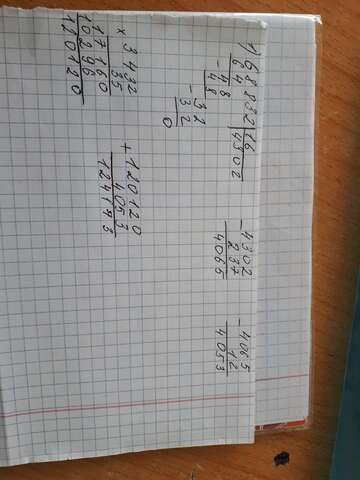 1) 68832 | 16
- 64 | 4302
- 48
48
- 32
32
0
- 4302
237
4065
- 4065
12
4053
× 3432
35
17160
10296
120120
+ 120120
4053
124173